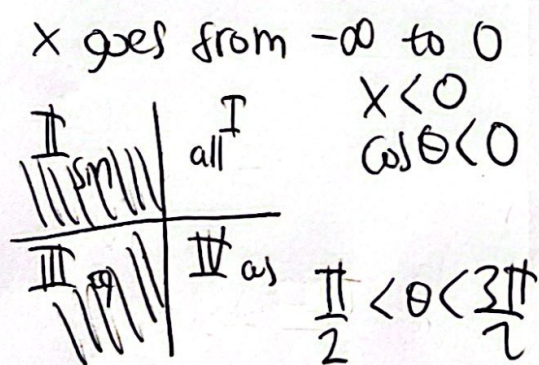 x goes from -∞ to 0
x < 0
cos θ < 0
II
I
sin
all
III
IV cos
π/2 < θ < 3π/2